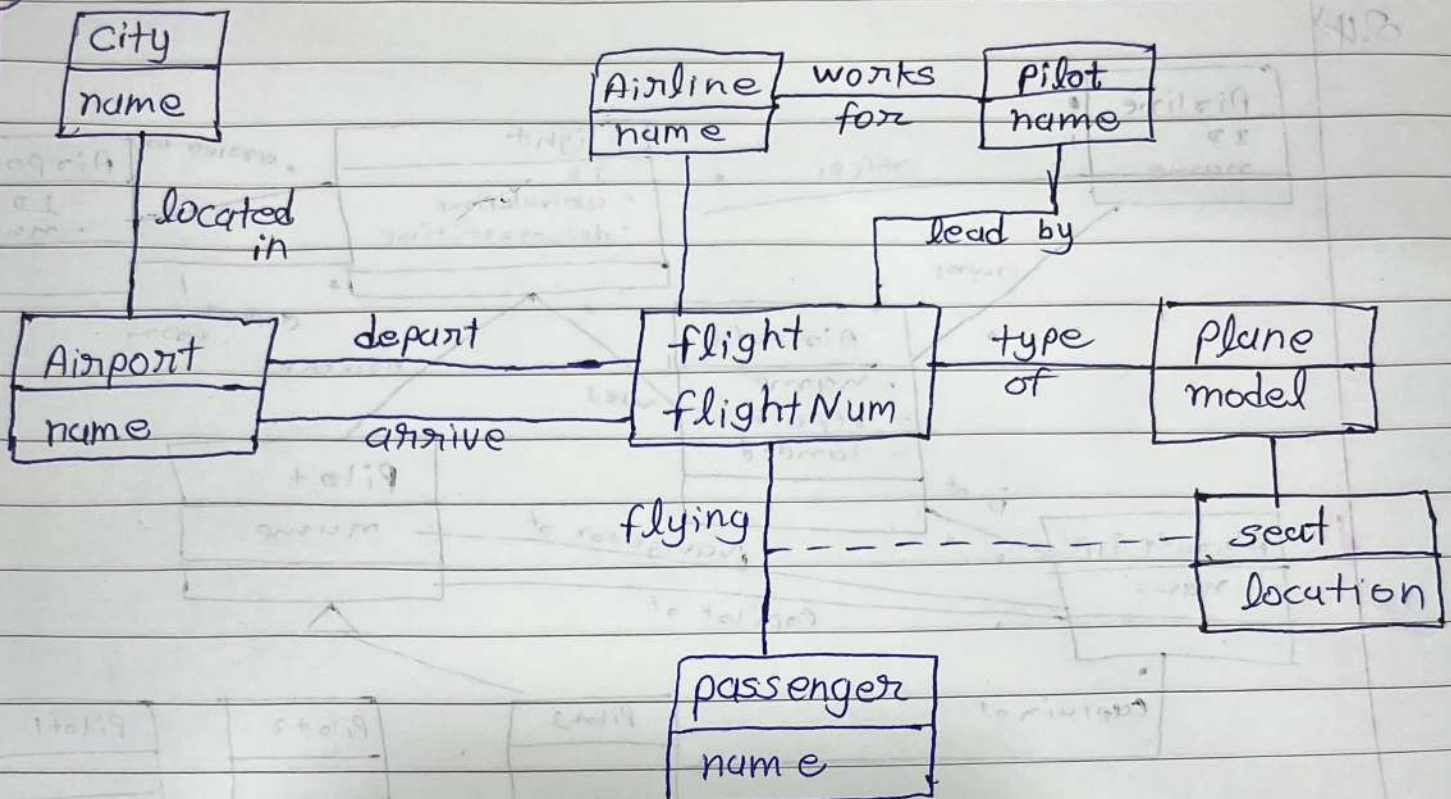 City
name
Airline
name
works
for
Pilot
name
located
in
lead by
Airport
name
depart
arrive
flight
flightNum
type
of
Plane
model
flying
seat
location
passenger
name